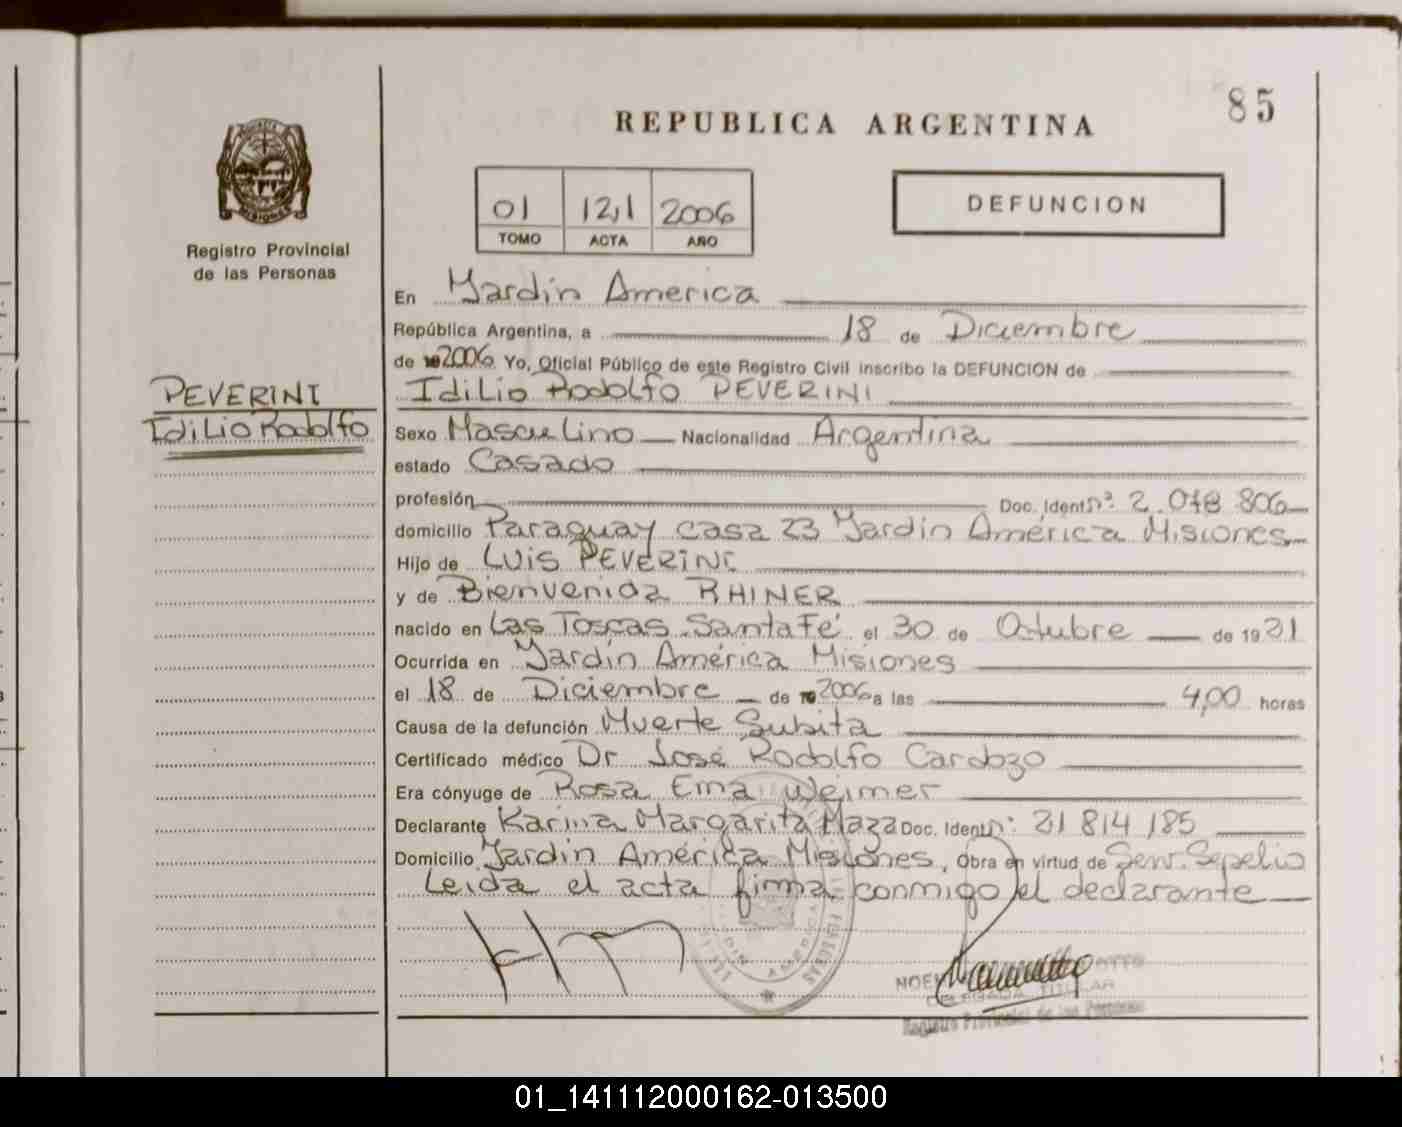 85
REPUBLICA ARGENTINA
MISIONES
Registro Provincial
de las Personas
01 12,1 2006
TOMO ACTA AÑO
DEFUNCION
En Jardin America
República Argentina, a 18 de Diciembre
de 2006 Yo, Oficial Público de este Registro Civil inscribo la DEFUNCION de
PEVERINI
Idilio Rodolfo
Idilio Rodolfo PEVERINI
Sexo Masculino Nacionalidad Argentina
estado Casado
profesión Doc. Ident nº. 2.048 806
domicilio Paraguay casa 23 Jardin América Misiones
Hijo de LUIS PEVERINI
y de Bienvenida RHINER
nacido en Las Toscas Santa Fé el 30 de Octubre de 1921
Ocurrida en Jardín América Misiones
el 18 de Diciembre de 2006 a las 4,00 horas
Causa de la defunción Muerte Subita
Certificado médico Dr José Rodolfo Cardozo
Era cónyuge de Rosa Ema Weimer
Declarante Karina Margarita Maza Doc. Ident nº: 21 814 185
Domicilio Jardin América Misiones, Obra en virtud de Serv. Sepelio
Leida el acta firma conmigo el declarante
TITULAR
Registro Provincial de las Personas
01_141112000162-013500